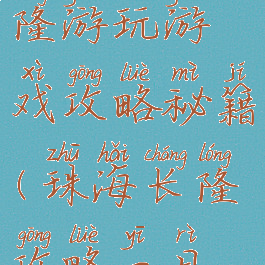 隆游玩游
xì gōng lüè mì jí
戏攻略秘籍
zhū hǎi cháng lóng
(珠海长隆
gōng lüè yī rì
攻略一日